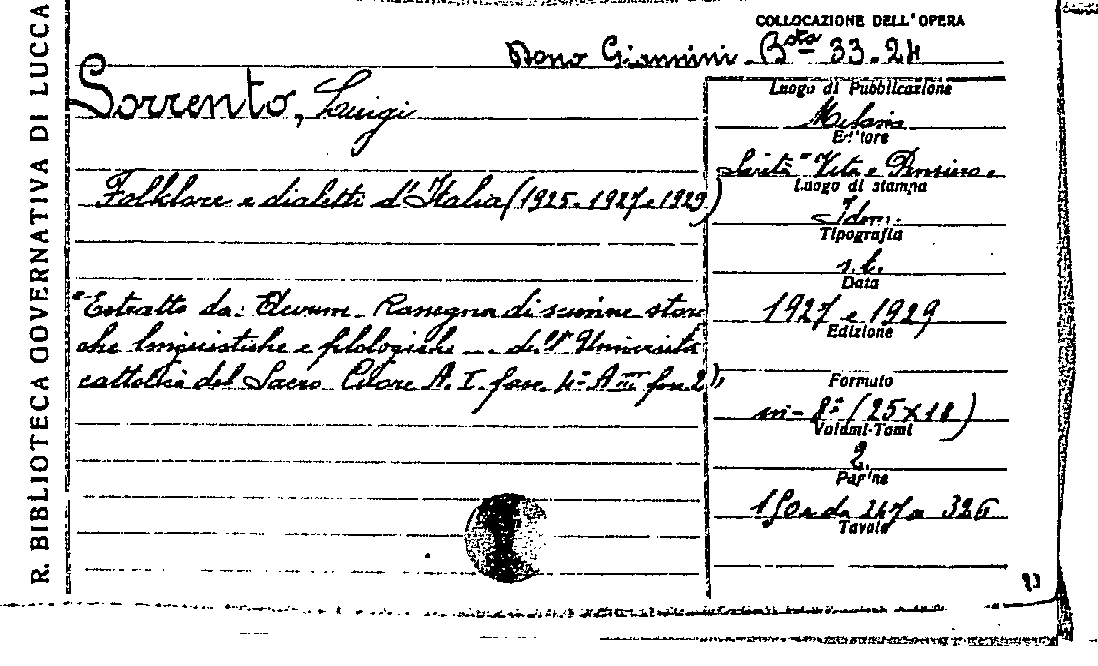 R. BIBLIOTECA GOVERNATIVA DI LUCCA
COLLOCAZIONE DELL'OPERA
Dono Giannini. Bsta 33.24
Sorrento, Luigi
Folklore e dialetti d'Italia (1925-1927 e 1929)
"Estratto da: Aevum. Rassegna di scienze stori
che linguistiche e filologiche ... dell'Università
cattolica del Sacro Cuore A. I. fasc. 4º A III fasc. 2),
Luogo di Pubblicazione
Milano
Editore
Società "Vita e Pensiero"
Luogo di stampa
Idem.
Tipografia
Data
1927 e 1929
Edizione
Formato
in-8º (25x18)
Volumi-Tomi
2.
Pagine
da 247 a 326
Tavole